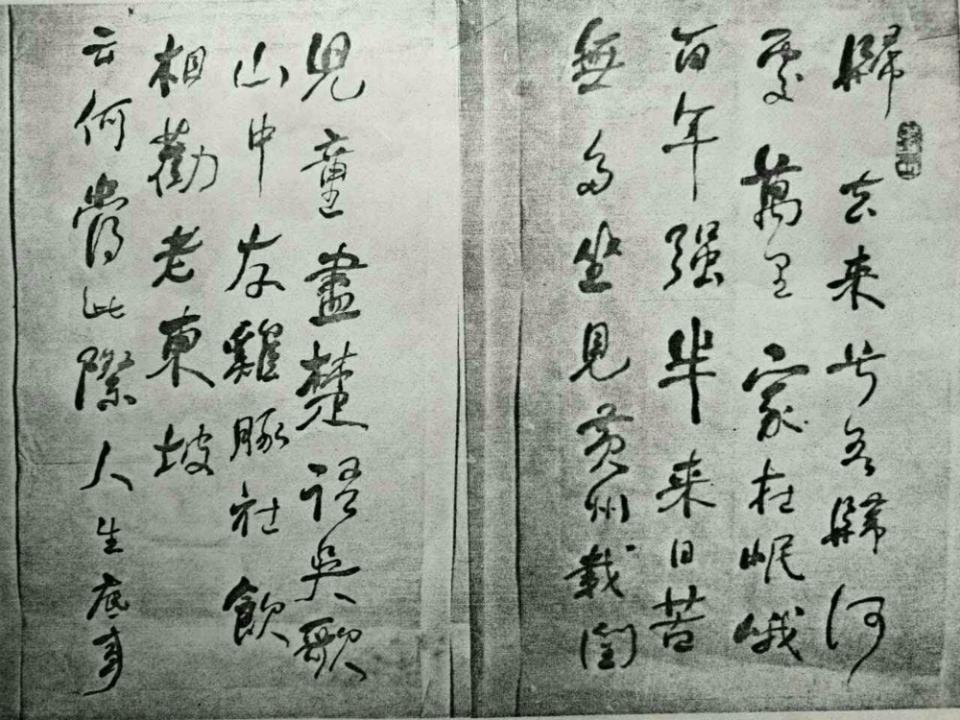 歸去来兮吾歸何
處萬里家在岷峨
百年强半来日苦
無多坐見黄州載閏
兒童盡楚語吳歌
山中友雞豚社飲
相勸老東坡
云何當此際人生底事